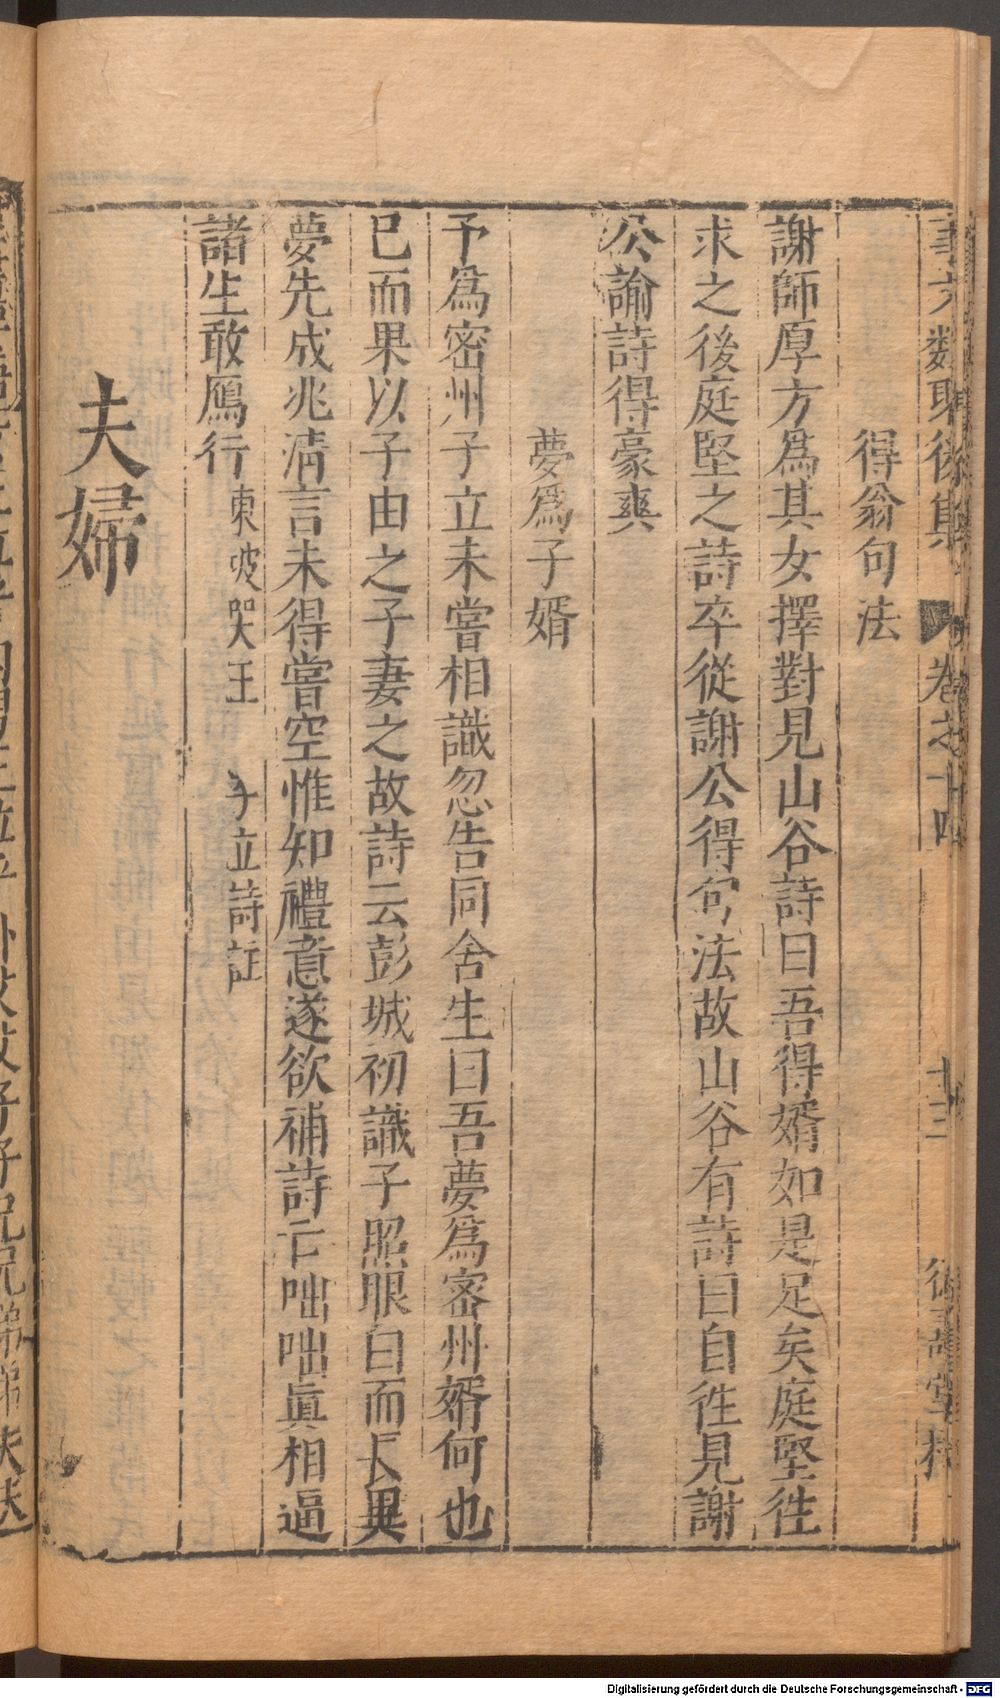 事文類聚後集 卷之十四 十三 德壽堂梓
得翁句法
謝師厚方爲其女擇對見山谷詩曰吾得婿如是足矣庭堅往
求之後庭堅之詩卒從謝公得句法故山谷有詩曰自徃見謝
公論詩得豪爽
夢爲子婿
予爲密州子立未嘗相識忽告同舍生曰吾夢爲密州婿何也
已而果以子由之子妻之故詩云彭城初識子照眼白而長異
夢先成兆淸言未得嘗空惟知禮意遂欲補詩亡咄咄眞相逼
諸生敢鴈行 東坡哭王子立詩註
夫婦
Digitalisierung gefördert durch die Deutsche Forschungsgemeinschaft - DFG